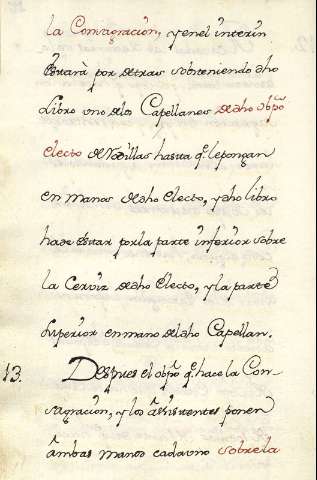 la Consagracion, y en el interin
estara por detras sobteniendo dho
Libro uno de los Capellanes de dho obpo
electo de Rodillas hasta q.e le pongan
en manos de dho electo, y dho libro
ha de estar por la parte inferior sobre
la Cerviz de dho Electo, y la parte
superior en mano de dho Capellan.
13. Despues el obpo q.e hace la Con-
sagracion, y los assistentes ponen
ambas manos cada uno sobre la